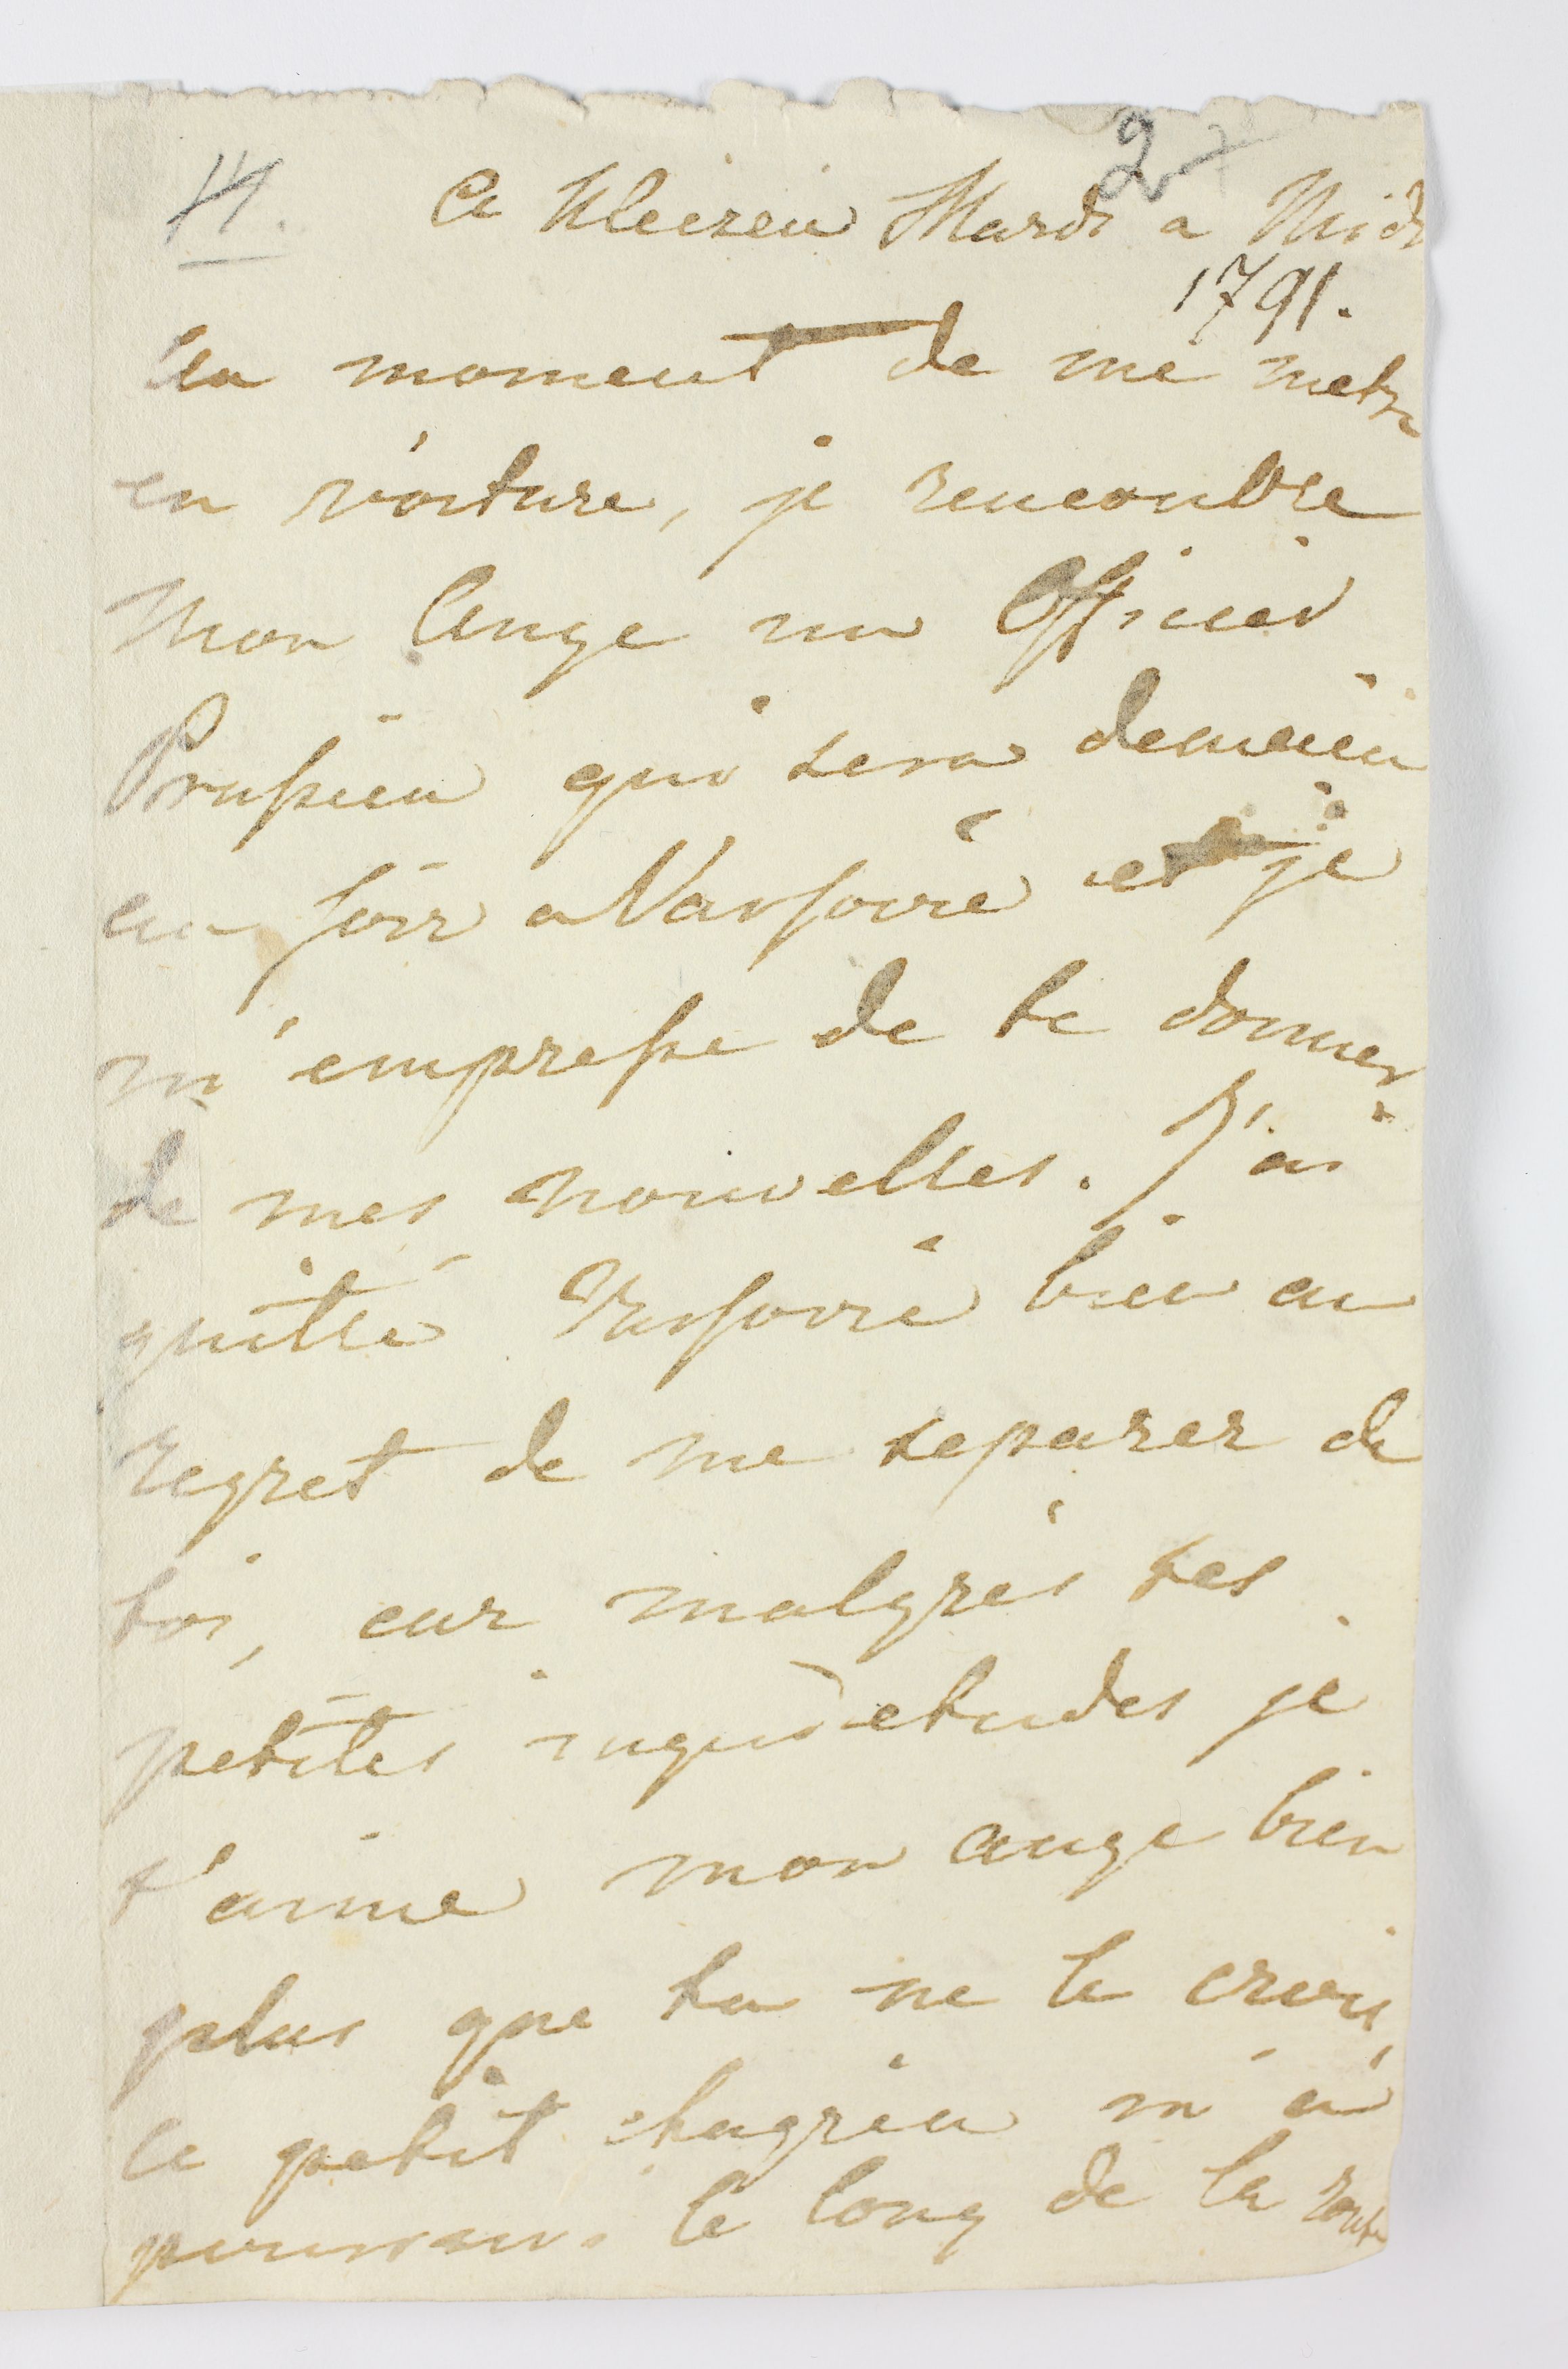 14. 2
Ce Kleczew Mardi a Midi
1791.
Au moment de me metre
en voiture, je rencontre
Mon Ange un Officier
Prussien qui sera demain
au soir a Varsovie et je
m'empresse de te donner
de mes nouvelles. J'ai
quitté Varsovie bien au
regret de me separer de
toi, car malgrés tes
petites inquietudes je
t'aime mon ange bien
plus que tu ne le crois,
ce petit chagrin m'a
poursuivi le long de la route